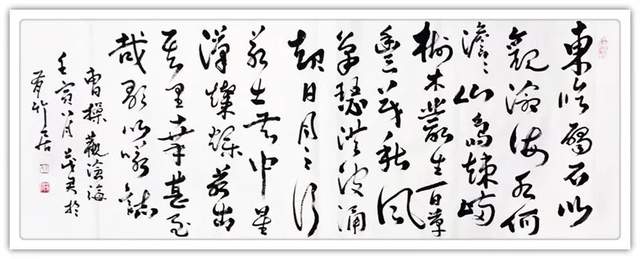 東臨碣石以
觀滄海水何
澹〻山島竦峙
樹木叢生百草
豐茂秋風
蕭瑟洪波涌
起日月之行
若出其中星
漢燦爛若出
其里幸甚至
哉歌以詠誌
曹操觀滄海
壬寅八月君於
竹居